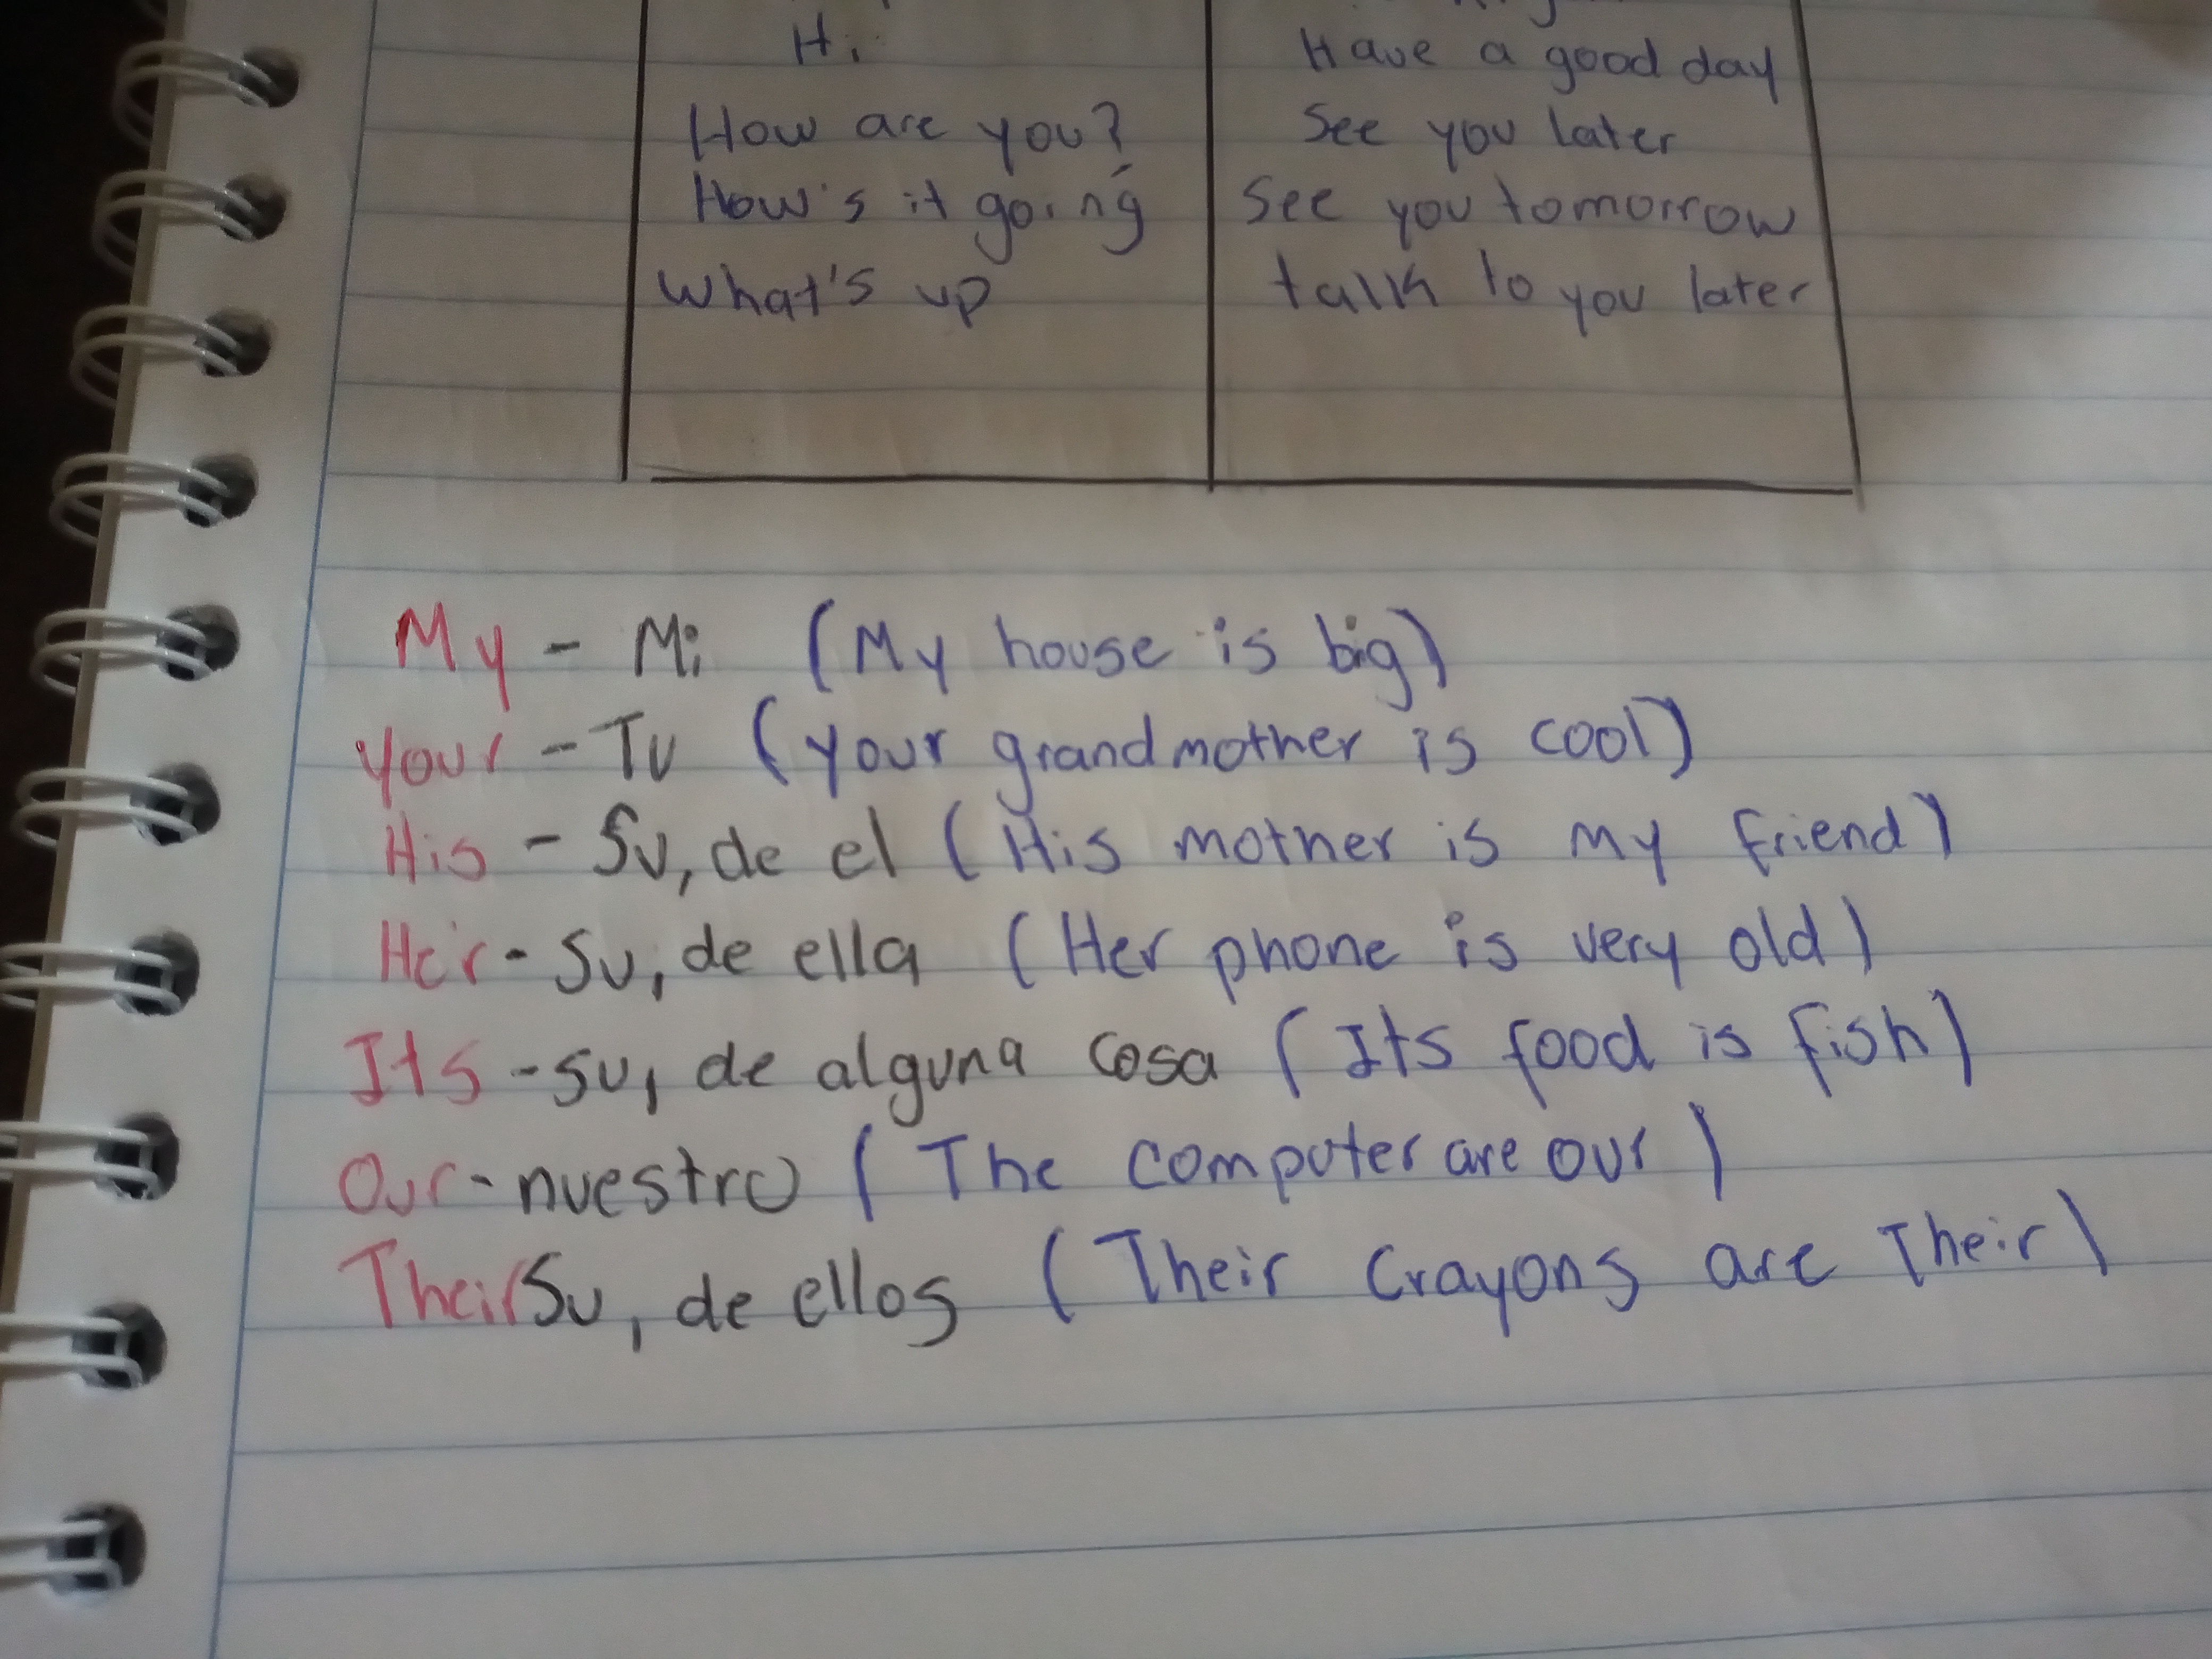 Hi
How are you?
How's it going
What's up
Have a good day
See you later
See you tomorrow
talk to you later
My - Mi (My house is big)
your - Tu (your grandmother is cool)
His - Su, de el (His mother is my friend)
Her - Su, de ella (Her phone is very old)
Its - su, de alguna cosa (Its food is fish)
Our - nuestro (The computer are our)
Their Su, de ellos (Their Crayons are Their)